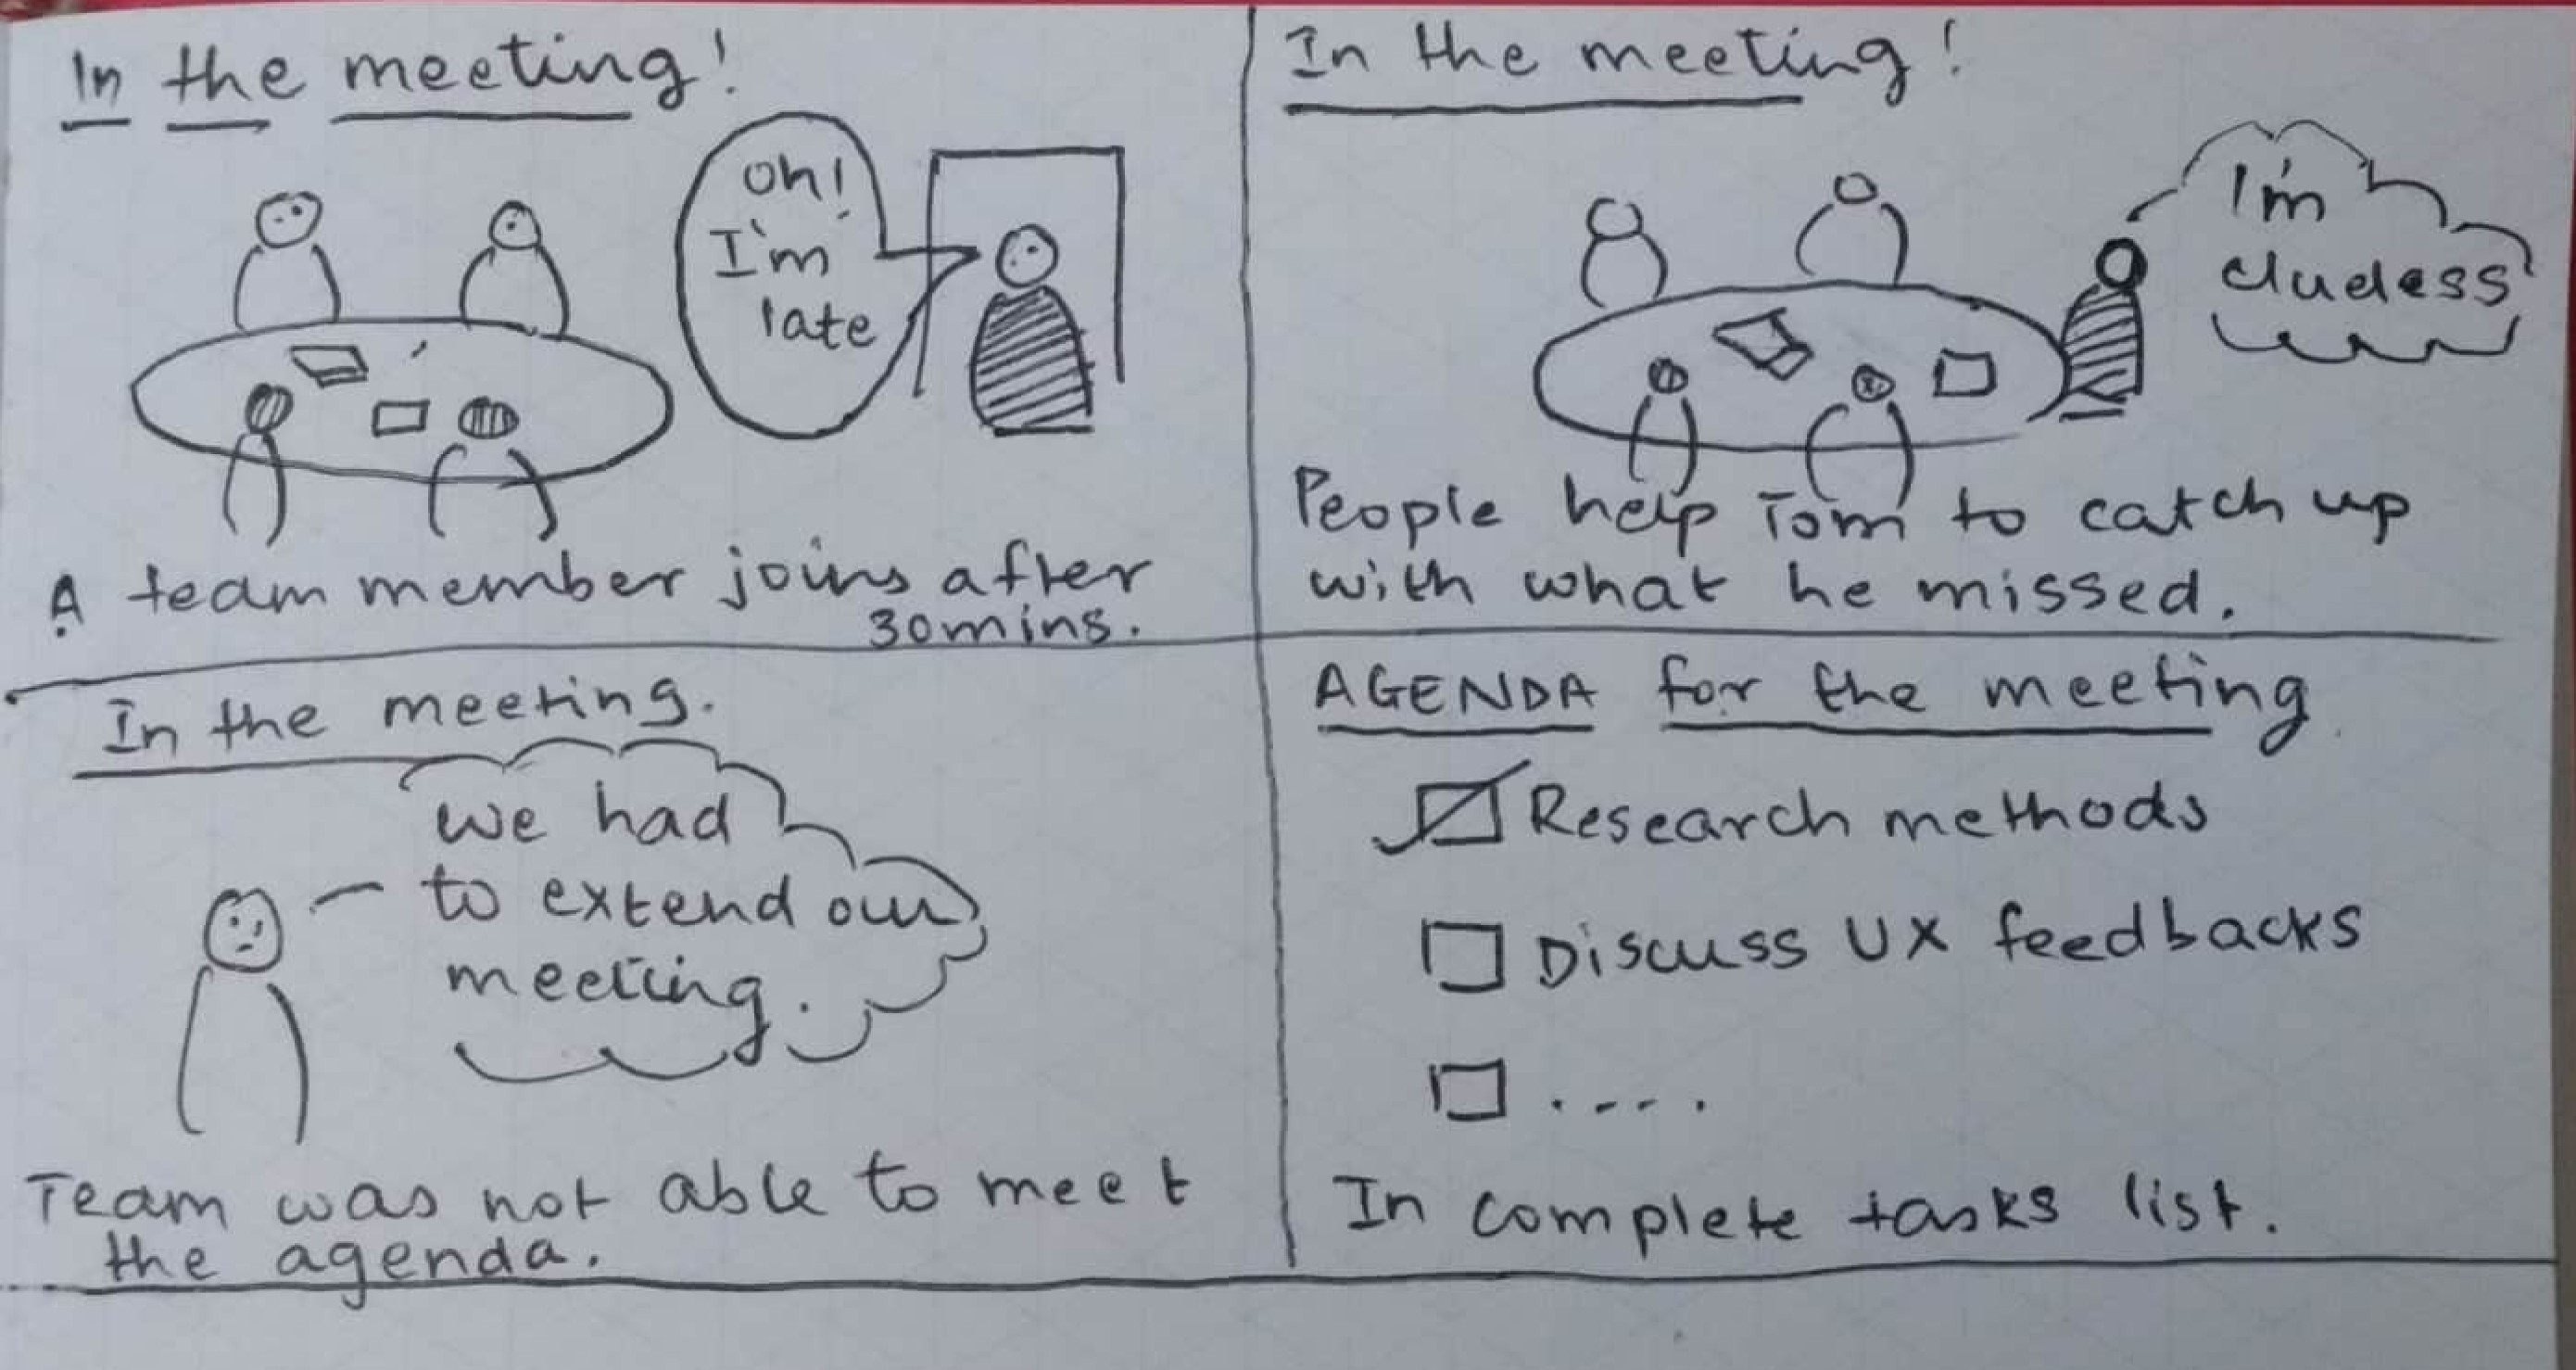 In the meeting!
oh!
I'm
late
A team member joins after
30mins.
In the meeting!
I'm
clueless
People help Tom to catch up
with what he missed.
In the meeting.
we had
to extend our
meeting.
Team was not able to meet
the agenda.
AGENDA for the meeting
Research methods
Discuss UX feedbacks
. - - - .
In complete tasks list.